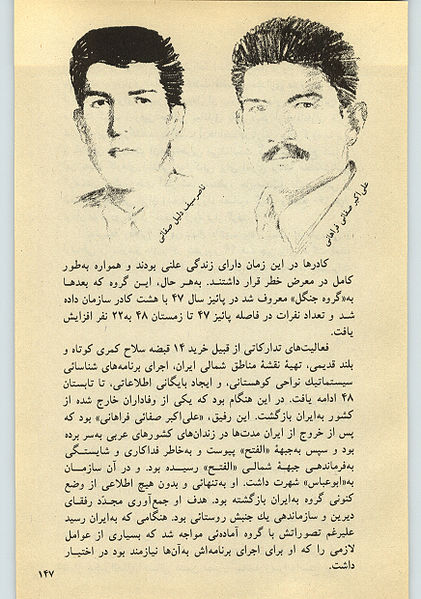 ناصر سیف دلیل صفائی
علی اکبر صفائی فراهانی
کادرها در این زمان دارای زندگی علنی بودند و همواره به‌طور
کامل در معرض خطر قرار داشتنـد. به‌هـر حال، ایـن گروه که بعدهـا
به«گروه جنگل» معروف شد در پائیز سال ۴۷ با هشت کادر سازمان داده
شـد و تعداد نفرات در فاصله پائیز ۴۷ تا زمستان ۴۸ به۲۲ نفر افزایش
یافت.
فعالیت‌های تدارکاتی از قبیل خرید ۱۴ قبضه سلاح کمری کوتاه و
بلند قدیمی، تهیهٔ نقشهٔ مناطق شمالی ایران، اجرای برنامه‌های شناسائی
سیستماتیك نواحی کوهستانی، و ایجاد بایگانی اطلاعاتی، تا تابستان
۴۸ ادامه یافت. در این هنگام بود که یکی از وفاداران خارج شده از
کشور به‌ایران بازگشت. این رفیق، «علی‌اکبر صفائی فراهانی» بود که
پس از خروج از ایران مدت‌ها در زندان‌های کشورهای عربی به‌سر برده
بود و سپس به‌جبههٔ «الفتح» پیوست و به‌خاطر فداکاری و شایستـگی
به‌فرماندهـی جبهـهٔ شمالـی «الفتـح» رسیـده بود. و در آن سازمـان
به«ابوعباس» شهرت داشت. او به‌تنهائی و بدون هیچ اطلاعی از وضع
کنونی گروه به‌ایران بازگشته بود. هدف او جمع‌آوری مجدّد رفقـای
دیرین و سازماندهی یك جنبش روستائی بود. هنگامی که به‌ایران رسید
علیرغم تصوراتش با گروه آماده‌ئی مواجه شد که بسیاری از عوامل
لازمی را که او برای اجرای برنامه‌اش به‌آن‌ها نیازمند بود در اختیـار
داشت.
۱۴۷